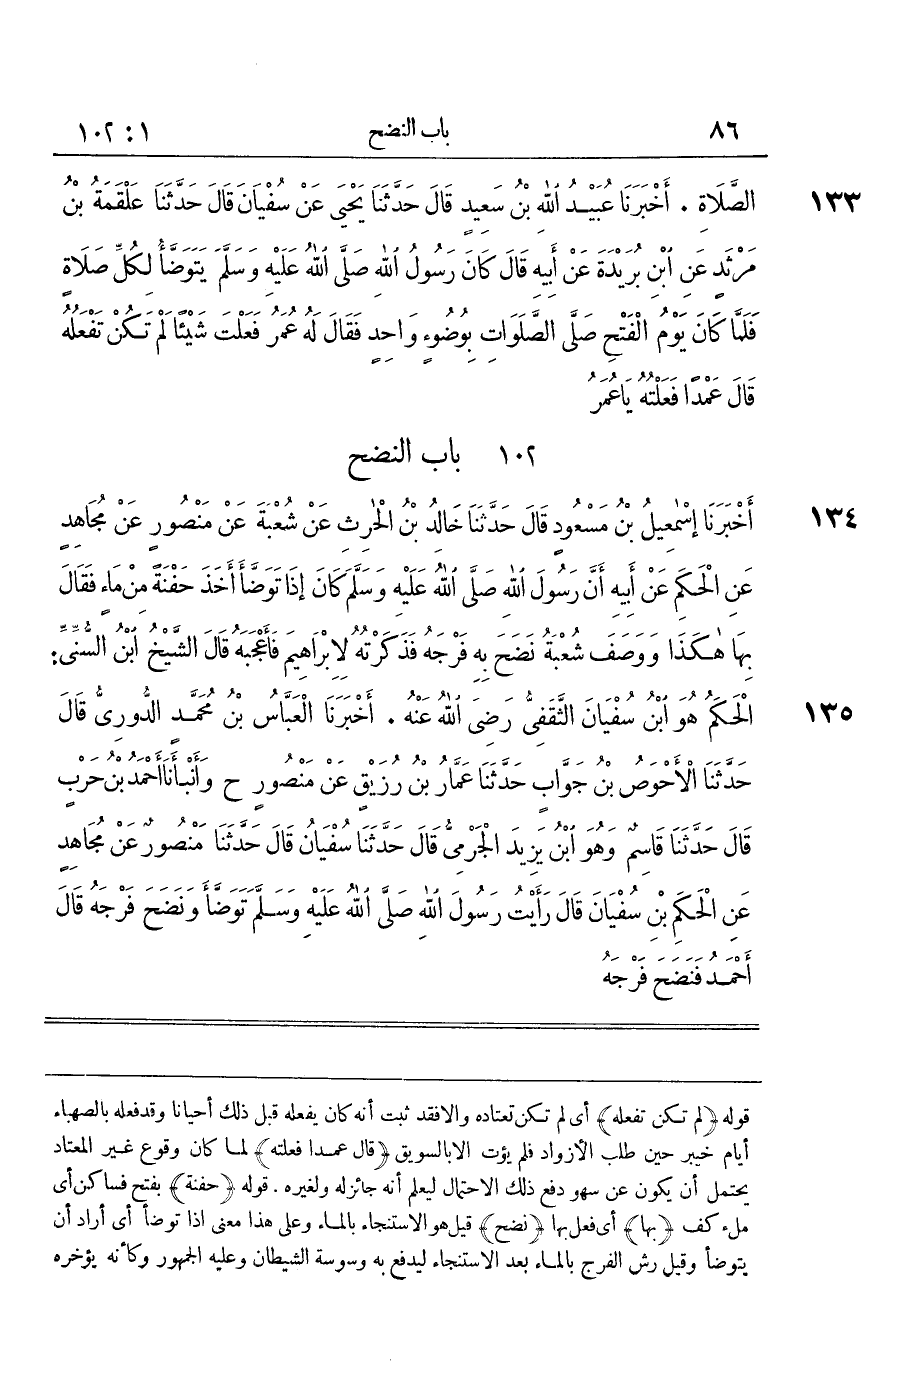 ٨٦ باب النضح ١ : ١٠٢
١٣٣ الصَّلَاةِ . أَخْبَرَنَا عُبَيْدُ ٱللهِ بْنُ سَعِيدٍ قَالَ حَدَّثَنَا يَحْيَى عَنْ سُفْيَانَ قَالَ حَدَّثَنَا عَلْقَمَةُ بْنُ
مَرْثَدٍ عَنِ ٱبْنِ بُرَيْدَةَ عَنْ أَبِيهِ قَالَ كَانَ رَسُولُ ٱللهِ صَلَّى ٱللهُ عَلَيْهِ وَسَلَّمَ يَتَوَضَّأُ لِكُلِّ صَلَاةٍ
فَلَمَّا كَانَ يَوْمُ الْفَتْحِ صَلَّى الصَّلَوَاتِ بِوُضُوءٍ وَاحِدٍ فَقَالَ لَهُ عُمَرُ فَعَلْتَ شَيْئًا لَمْ تَكُنْ تَفْعَلُهُ
قَالَ عَمْدًا فَعَلْتُهُ يَاعُمَرُ
١٠٢ باب النضح
١٣٤ أَخْبَرَنَا إِسْمٰعِيلُ بْنُ مَسْعُودٍ قَالَ حَدَّثَنَا خَالِدُ بْنُ الْحٰرِثِ عَنْ شُعْبَةَ عَنْ مَنْصُورٍ عَنْ مُجَاهِدٍ
عَنِ الْحَكَمِ عَنْ أَبِيهِ أَنَّ رَسُولَ ٱللهِ صَلَّى ٱللهُ عَلَيْهِ وَسَلَّمَ كَانَ إِذَا تَوَضَّأَ أَخَذَ حَفْنَةً مِنْ مَاءٍ فَقَالَ
بِهَا هٰكَذَا وَوَصَفَ شُعْبَةُ نَضَحَ بِهِ فَرْجَهُ فَذَكَرْتُهُ لِإِبْرَاهِيمَ فَأَعْجَبَهُ قَالَ الشَّيْخُ ابْنُ السُّنِّيِّ:
١٣٥ الْحَكَمُ هُوَ ٱبْنُ سُفْيَانَ الثَّقَفِيُّ رَضِىَ ٱللهُ عَنْهُ . أَخْبَرَنَا الْعَبَّاسُ بْنُ مُحَمَّدٍ الدُّورِىُّ قَالَ
حَدَّثَنَا الْأَحْوَصُ بْنُ جَوَّابٍ حَدَّثَنَا عَمَّارُ بْنُ رُزَيْقٍ عَنْ مَنْصُورٍ ح وَأَنْبَأَنَا أَحْمَدُ بْنُ حَرْبٍ
قَالَ حَدَّثَنَا قَاسِمٌ وَهُوَ ٱبْنُ يَزِيدَ الْجَرْمِىُّ قَالَ حَدَّثَنَا سُفْيَانُ قَالَ حَدَّثَنَا مَنْصُورٌ عَنْ مُجَاهِدٍ
عَنِ الْحَكَمِ بْنِ سُفْيَانَ قَالَ رَأَيْتُ رَسُولَ ٱللهِ صَلَّى ٱللهُ عَلَيْهِ وَسَلَّمَ تَوَضَّأَ وَنَضَحَ فَرْجَهُ قَالَ
أَحْمَدُ فَنَضَحَ فَرْجَهُ
قوله ﴿لم تكن تفعله﴾ أى لم تكن تعتاده والافقد ثبت أنه كان يفعله قبل ذلك أحيانا وقدفعله بالصهباء
أيام خيبر حين طلب الأزواد فلم يؤت الابالسويق ﴿قال عمدا فعلته﴾ لما كان وقوع غير المعتاد
يحتمل أن يكون عن سهو دفع ذلك الاحتمال ليعلم أنه جائز له ولغيره . قوله ﴿حفنة﴾ بفتح فساكن أى
ملء كف ﴿بها﴾ أى فعل بها ﴿نضح﴾ قيل هو الاستنجاء بالماء وعلى هذا معنى اذا توضأ أى أراد أن
يتوضأ وقيل رش الفرج بالماء بعد الاستنجاء ليدفع به وسوسة الشيطان وعليه الجمهور وكأنه يؤخره